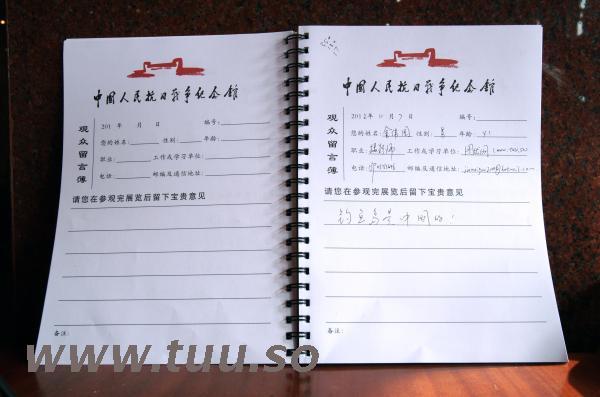 中国人民抗日战争纪念馆
观众留言簿
201 年 月 日 编号:
您的姓名: 性别: 年龄:
职业: 工作或学习单位:
电话: 邮编及通信地址:
请您在参观完展览后留下宝贵意见
备注:
中国人民抗日战争纪念馆
观众留言簿
2012年11月7日 编号:
您的姓名: 性别: 年龄: 41
职业: 摄影师 工作或学习单位: www.tuu.so
电话: 邮编及通信地址:
请您在参观完展览后留下宝贵意见
钓鱼岛是中国的!
备注:
www.tuu.so